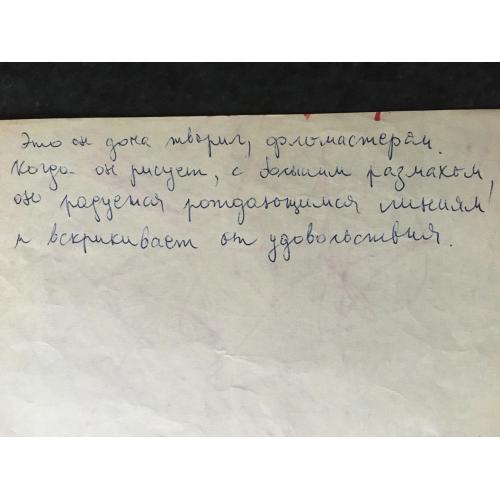 Это он дома творил, фломастерам.
Когда он рисует, с большим размахом,
он радуется рождающимся линиям
и вскрикивает от удовольствия.